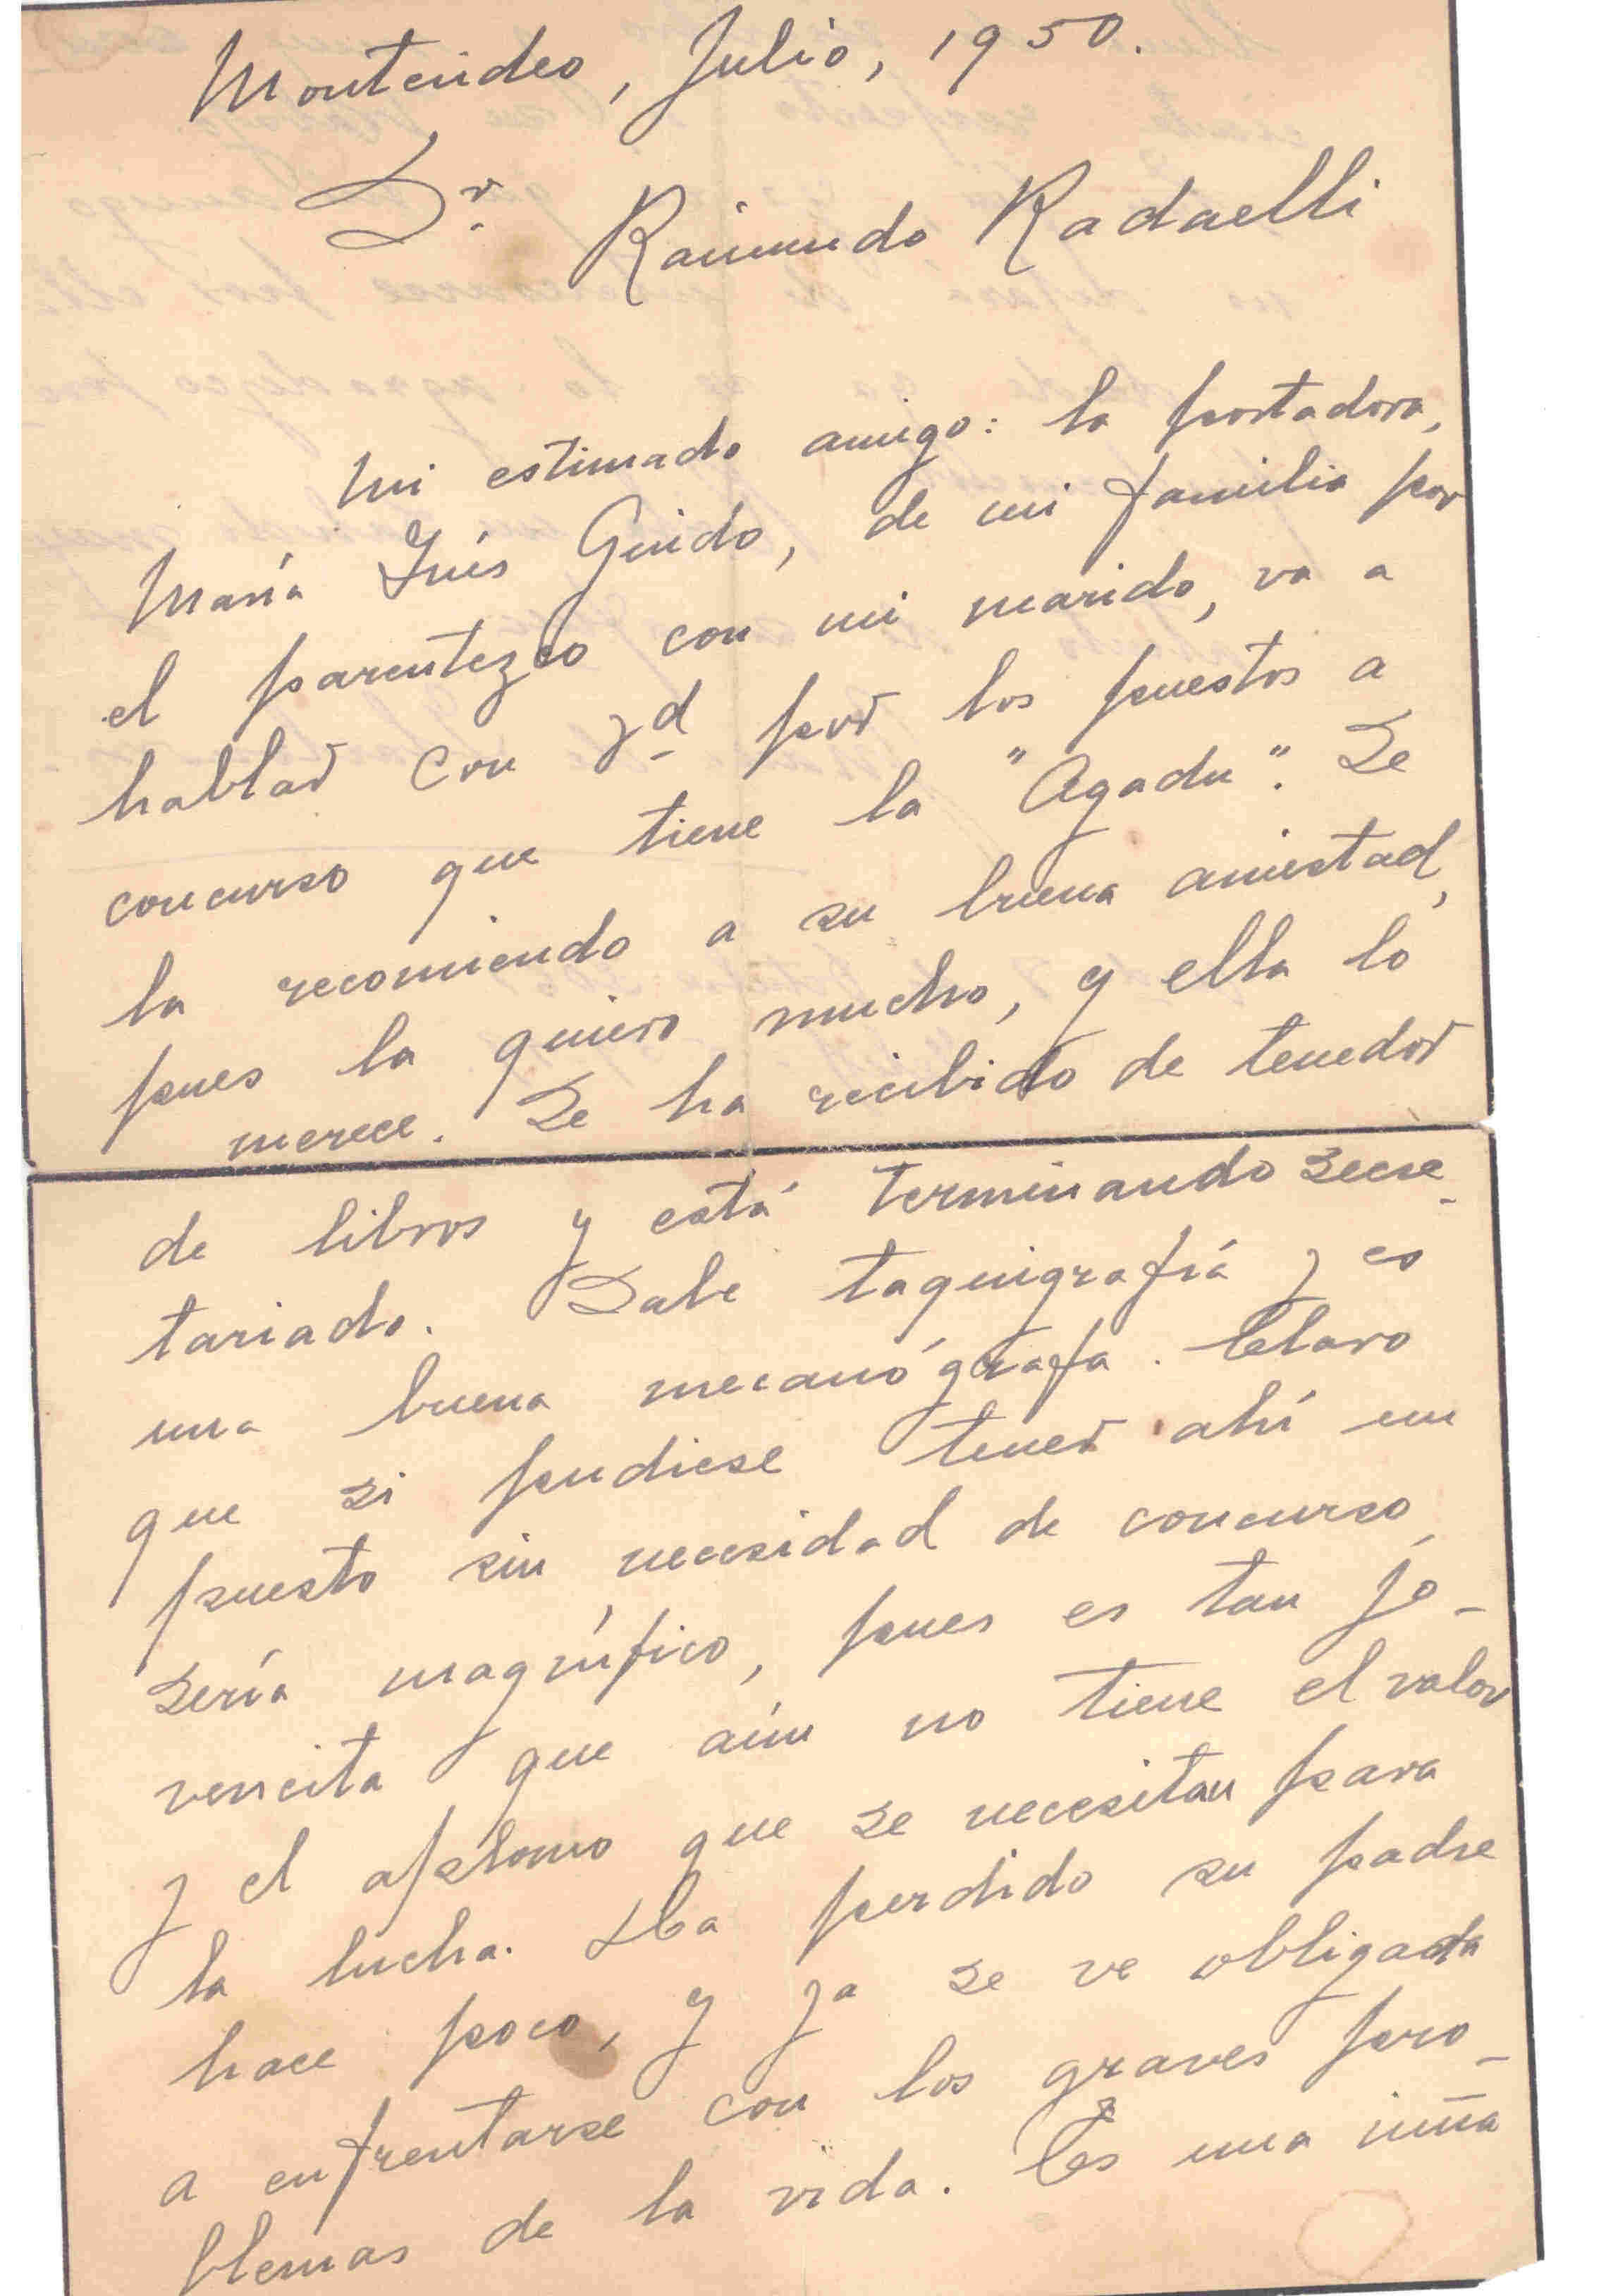 Montevideo, Julio, 1950.
Dr. Raimundo Radaelli
Mi estimado amigo: la portadora,
María Inés Guido, de mi familia por
el parentezco con mi marido, va a
hablar con Vd por los puestos a
concurso que tiene la "Agadu". Se
la recomiendo a su buena amistad,
pues la quiero mucho, y ella lo
merece. Se ha recibido de tenedor
de libros y está terminando Secre-
tariado. Sabe taquigrafía y es
una buena mecanógrafa. Claro
que si pudiese tener ahí un
puesto sin necesidad de concurso,
sería magnífico, pues es tan jo-
vencita que aún no tiene el valor
y el aplomo que se necesitan para
la lucha. Ha perdido su padre
hace poco, y ya se ve obligada
a enfrentarse con los graves pro-
blemas de la vida. Es una niña